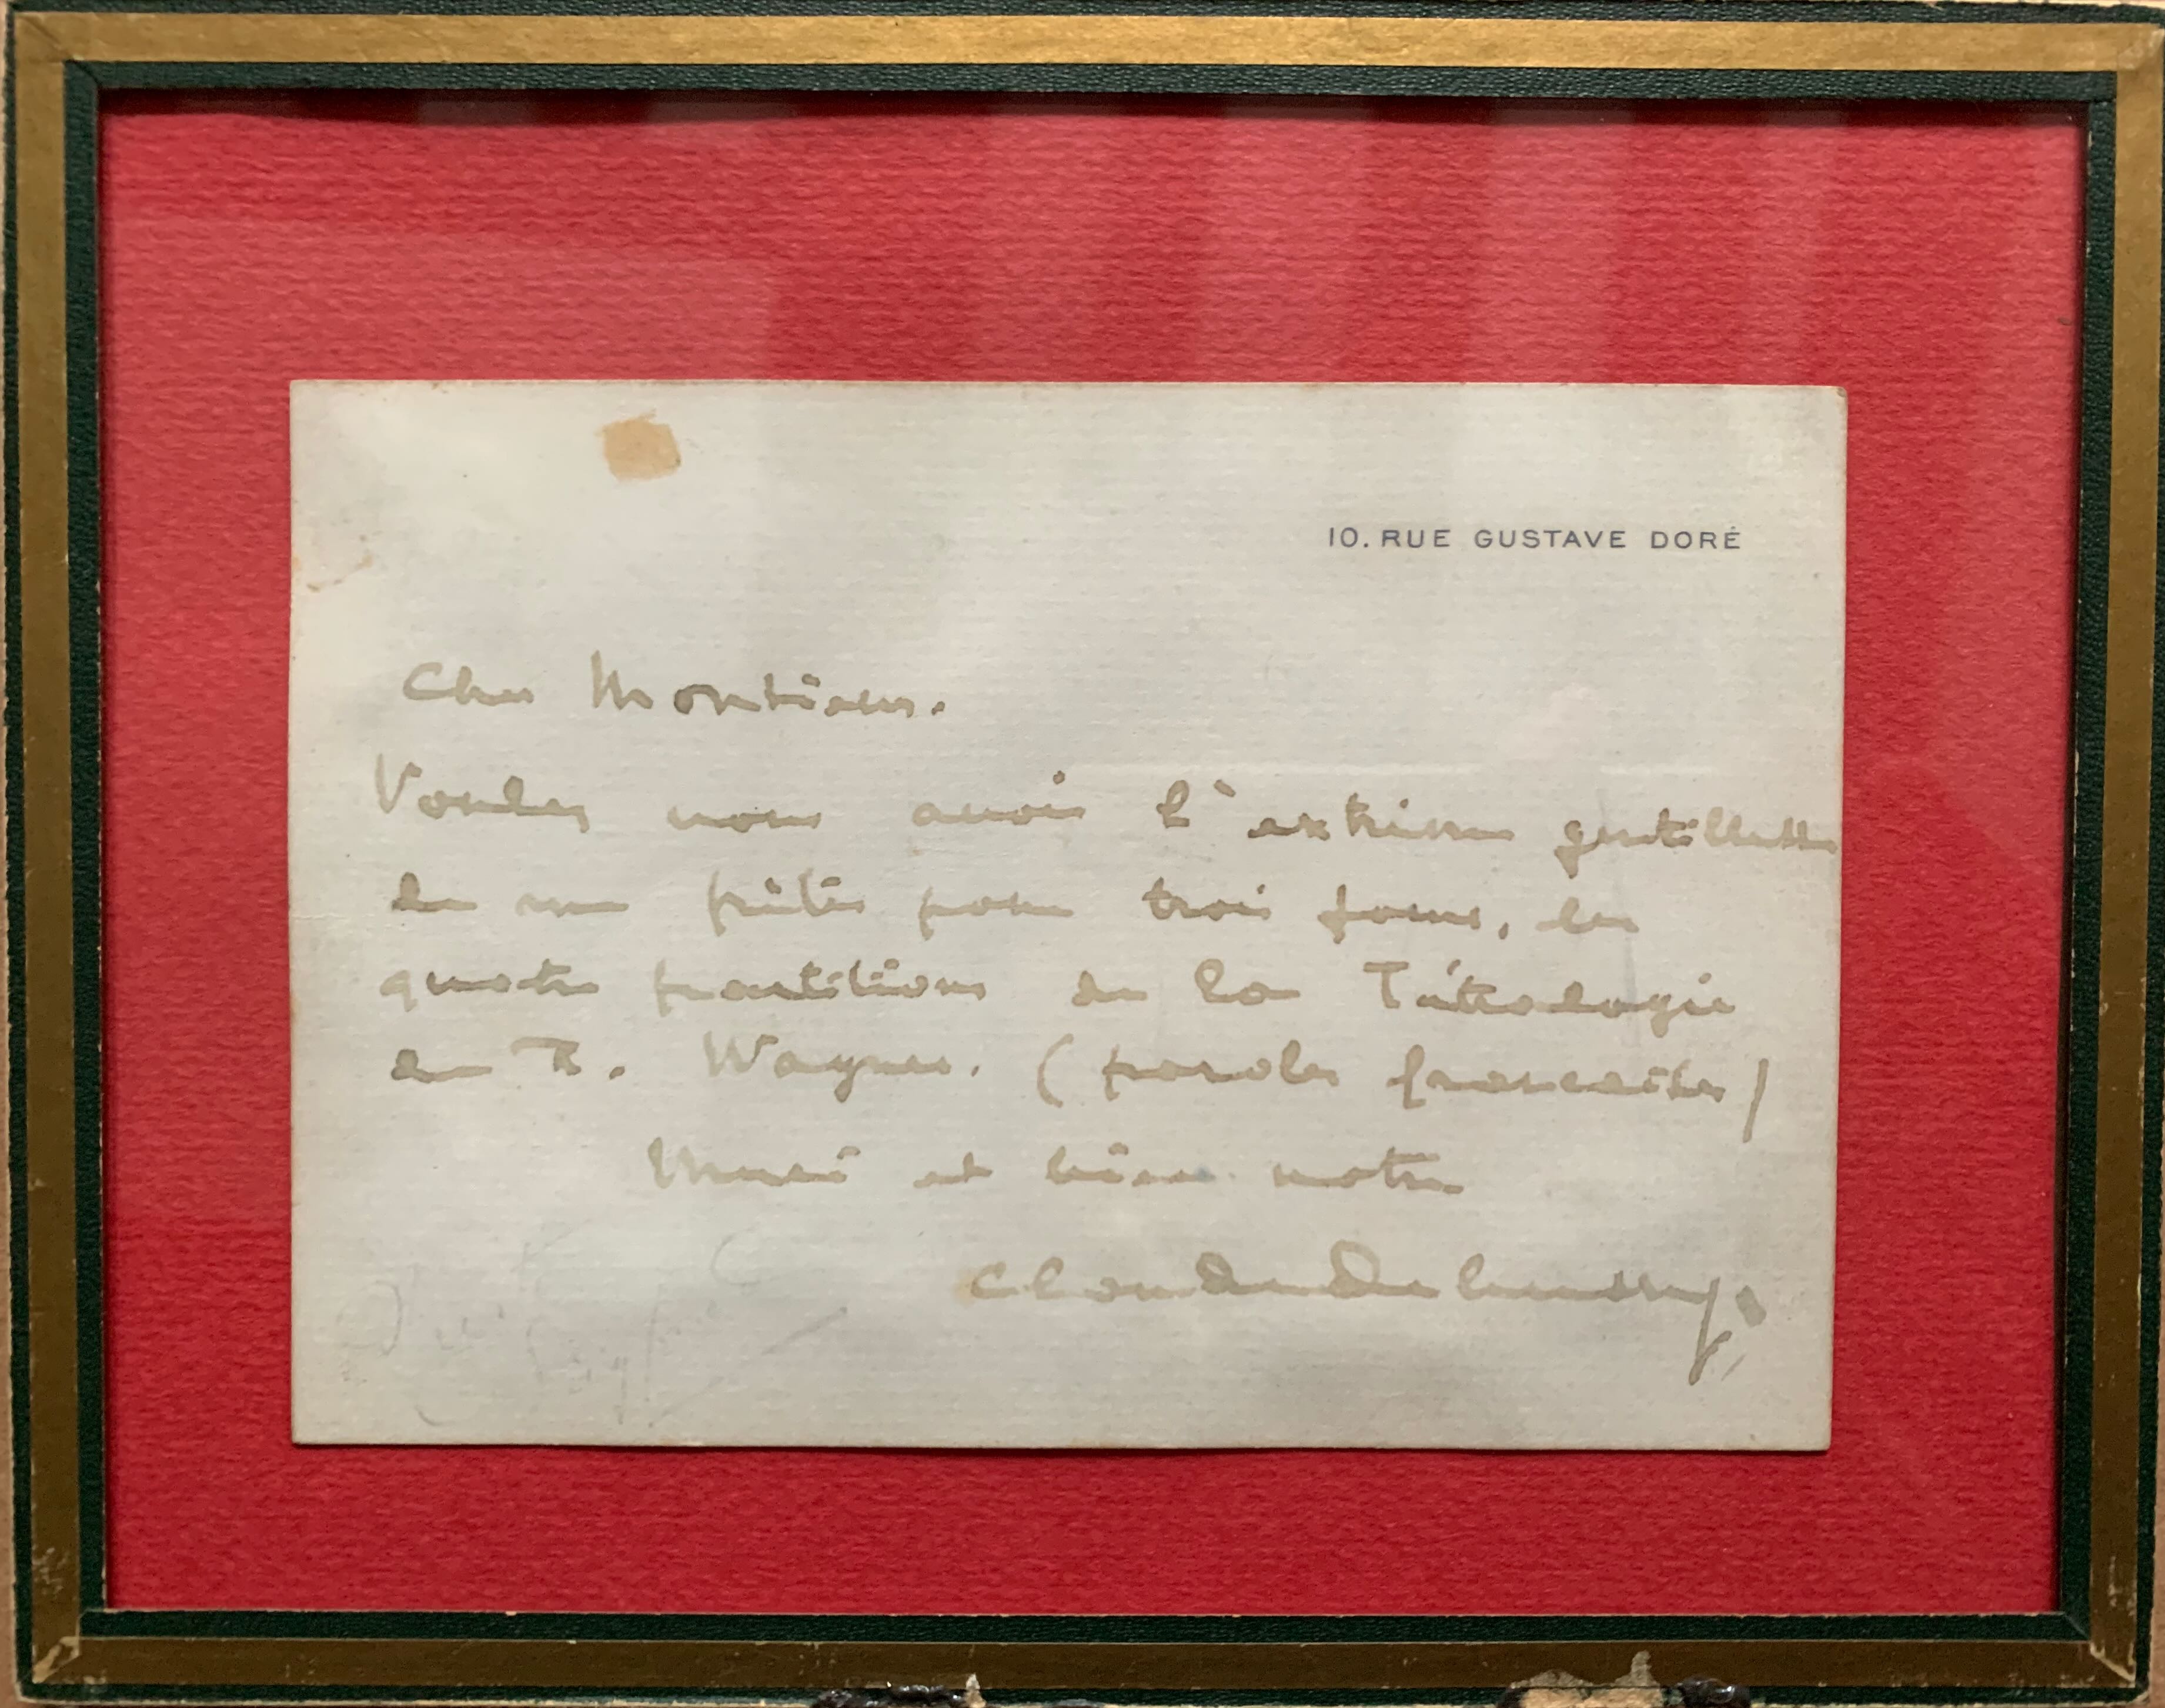 10. RUE GUSTAVE DORÉ
Cher Monsieur.
Voulez vous avoir l'extrême gentillesse
de me prêter pour trois jours, les
quatre partitions de la Tétralogie
de R. Wagner. (paroles françaises)
Merci et bien votre
Claude Debussy